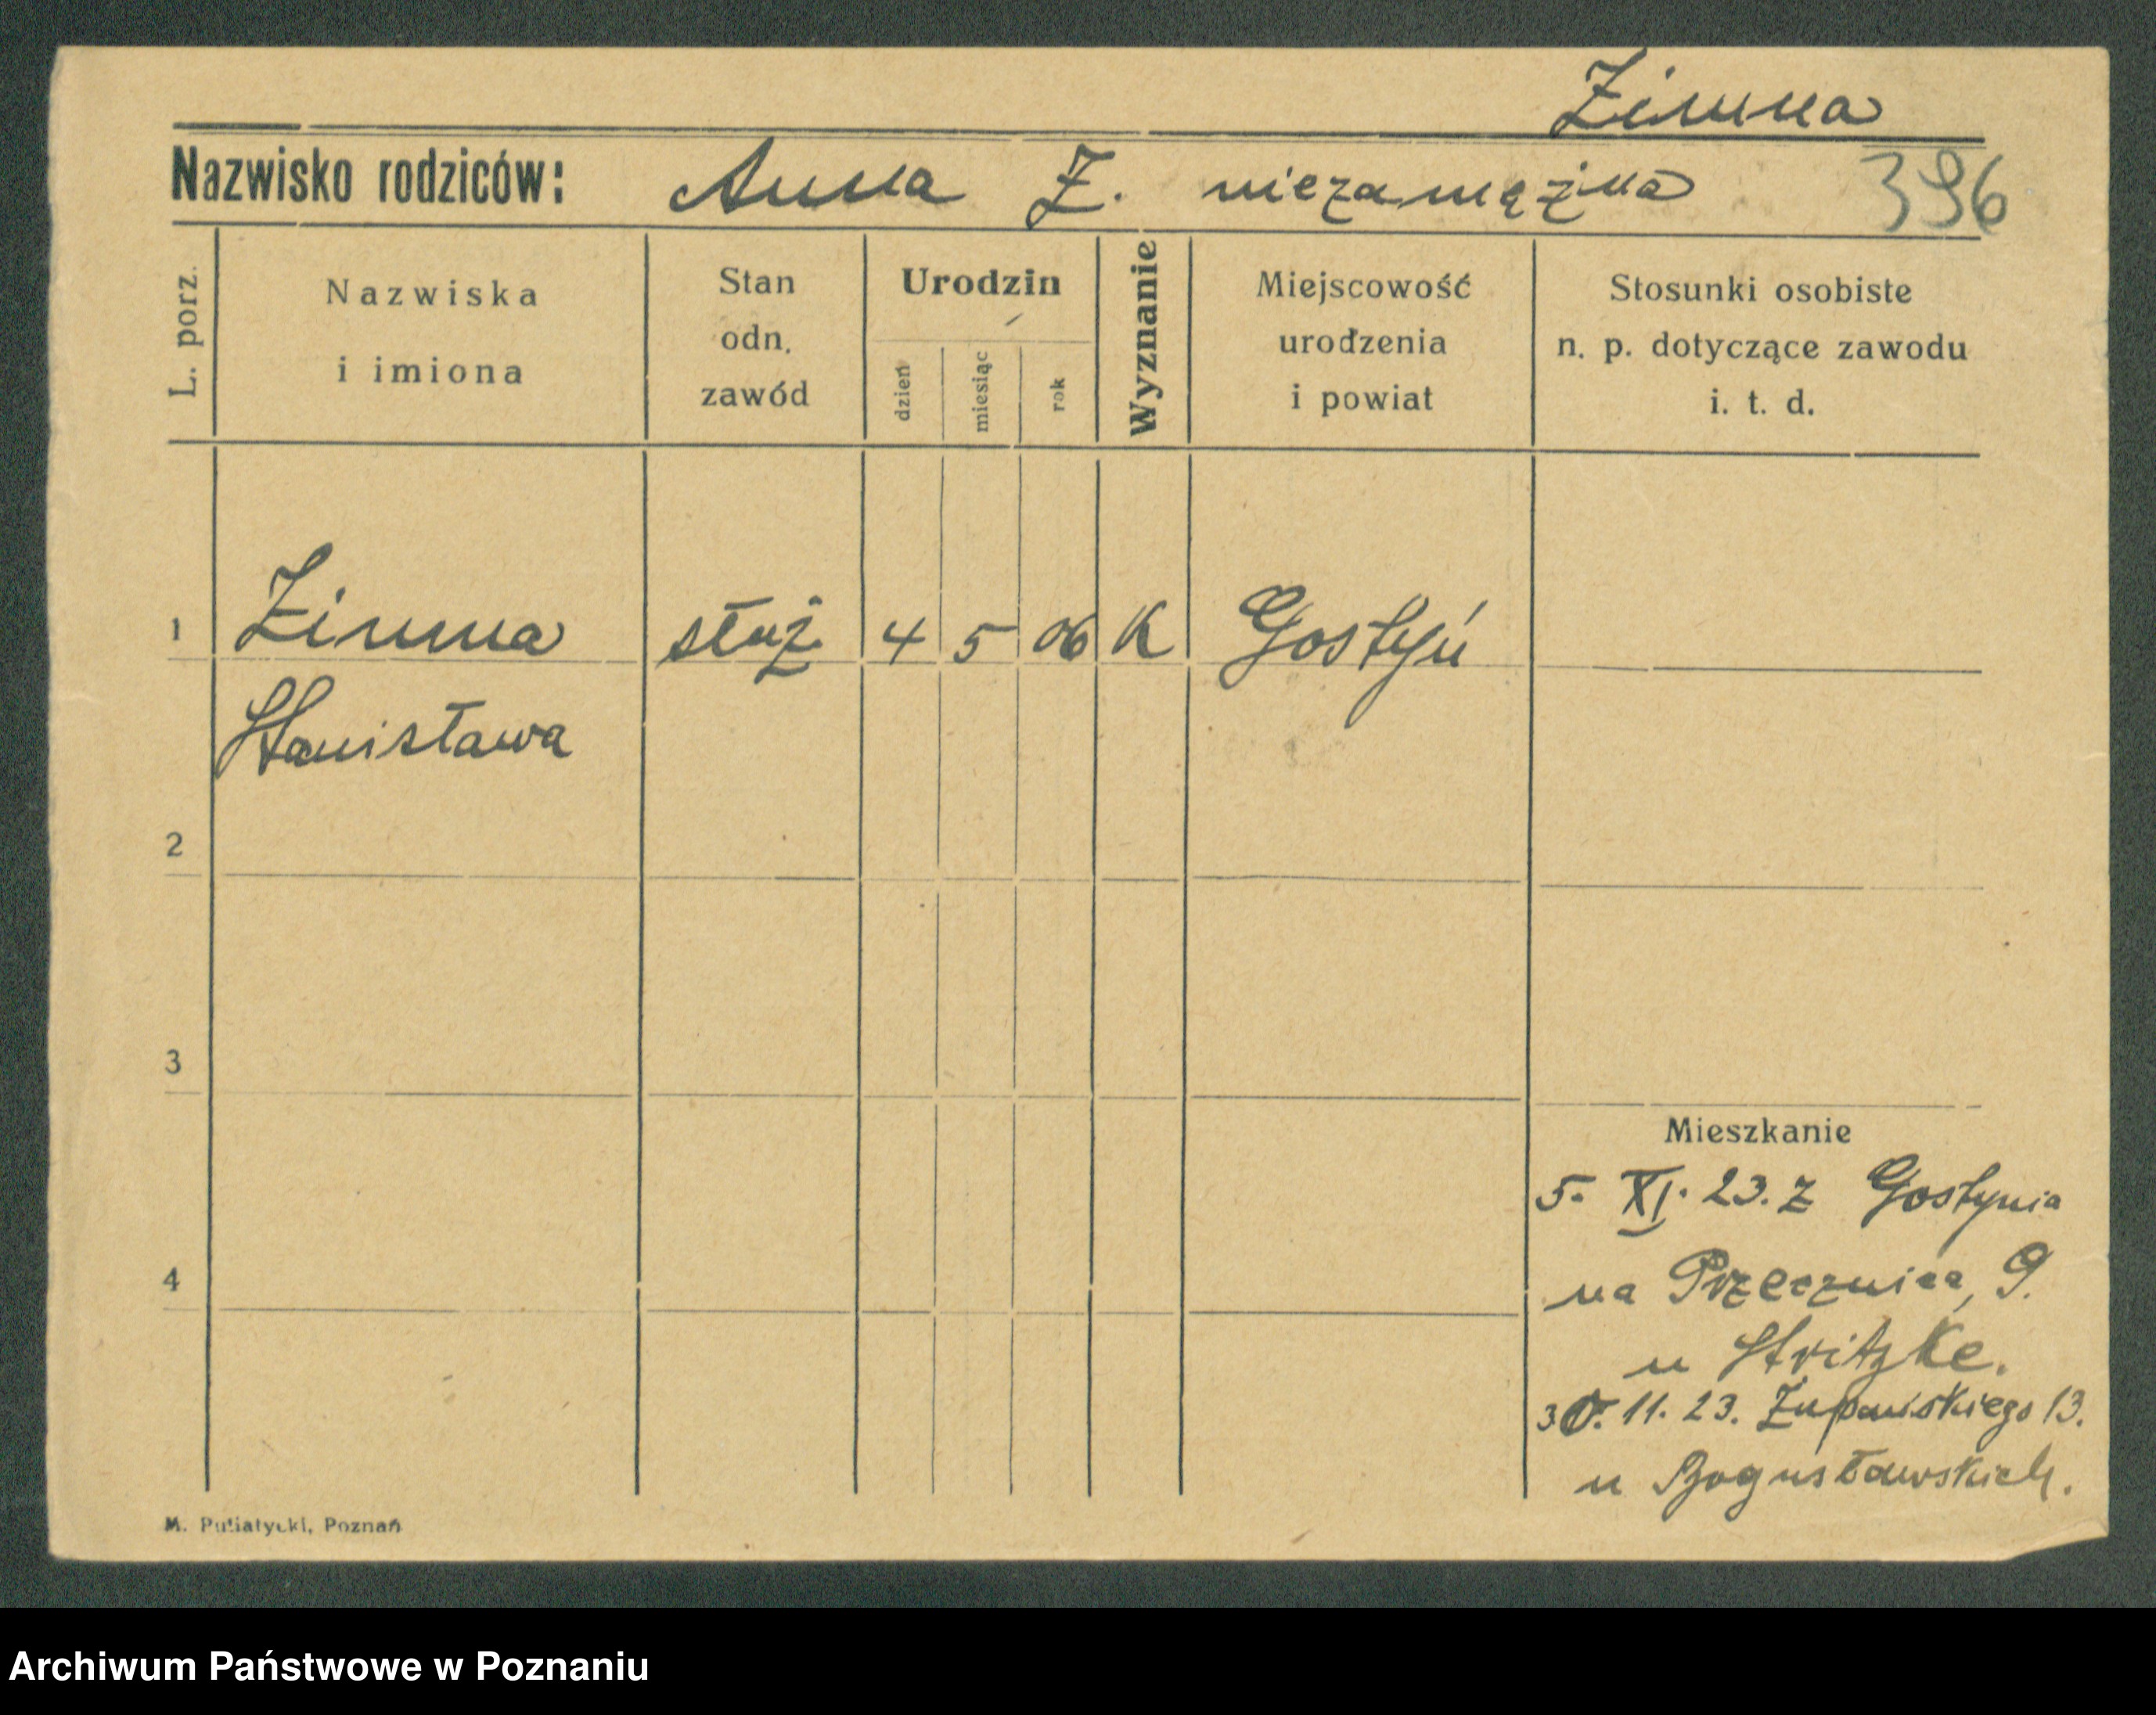 Zimna
Nazwisko rodziców: Anna Z. niezamężna 396
L. porz.
Nazwiska
i imiona
Stan
odn.
zawód
Urodzin
dzień
miesiąc
rok
Wyznanie
Miejscowość
urodzenia
i powiat
Stosunki osobiste
n. p. dotyczące zawodu
i. t. d.
1 Zimna służ 4 5 06 K Gostyń
Stanisława
2
3
Mieszkanie
5. XI. 23. z Gostynia
4
na Przecznica, 9.
u Stritzke.
30. 11. 23. Żupańskiego 13.
u Bogusławskich.
M. Putiatycki, Poznań
Archiwum Państwowe w Poznaniu